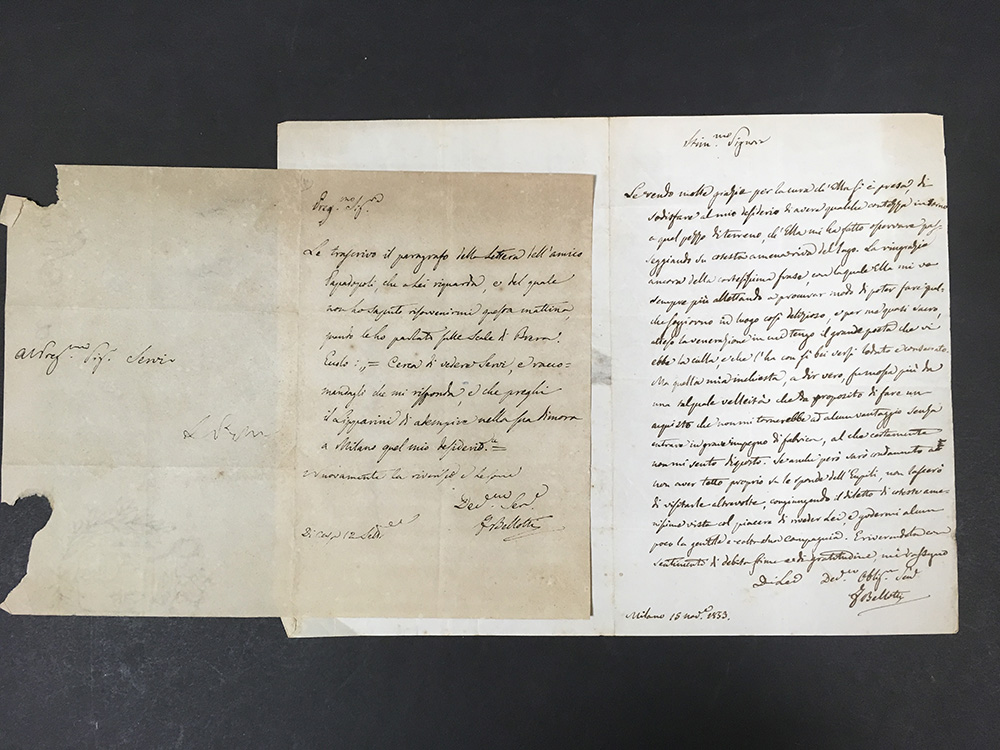 Al Preg.mo Sig.r Servi
Preg.mo Sig.r
Le trascrivo il paragrafo della Lettera dell'amico
Papadopoli, che a Lei riguarda, e del quale
non ho saputo risovvenirmi questa mattina
quando le ho parlato sulle Scale di Brera.
Cerca di vedere Servi, e racco-
mandagli che mi risponda, e che preghi
il Gasparini di adempire nella sua dimora
a Milano quel mio desiderio.
E nuovamente la riverisco
Dev.mo Ser.e
F. Bellotti
Di Casa 12
Stim.mo Signore
Le rendo molte grazie per la cura ch'Ella si è presa di
sodisfare al mio desiderio di avere qualche contezza intorno
a quel pezzo di terreno, ch'Ella mi ha fatto osservare pas-
seggiando su cotesta amena riva del lago. La ringrazio
ancora della cortesissima frase, con la quale Ella mi va
sempre più allettando a procurar modo di poter fare qual-
che soggiorno in luogo così delizioso, e per me quasi sacro,
attesa la venerazione in che tengo il grande poeta che vi
ebbe la culla, e che l'ha con sì bei versi lodato e consacrato.
Ma quella mia inchiesta, a dir vero, fu mossa più da
una tal quale velleità che da proposito di fare un
acquisto che non mi tornerebbe ad alcun vantaggio senza
entrare in grave impegno di fabbrica, al che certamente
non mi sento disposto. Se anche però sarò condannato a
non aver tetto proprio su le sponde dell'Eupili, non lascerò
di visitarle altre volte, congiungendo il diletto di coteste ame-
nissime viste col piacere di riveder Lei, e godermi alcun
poco la gentile e colta sua compagnia. E riverendola con
sentimento di debita stima e di gratitudine, mi rassegno
Di Lei Dev.mo Obbl.mo Serv.e
F. Bellotti
Milano 15 nov.e 1833.